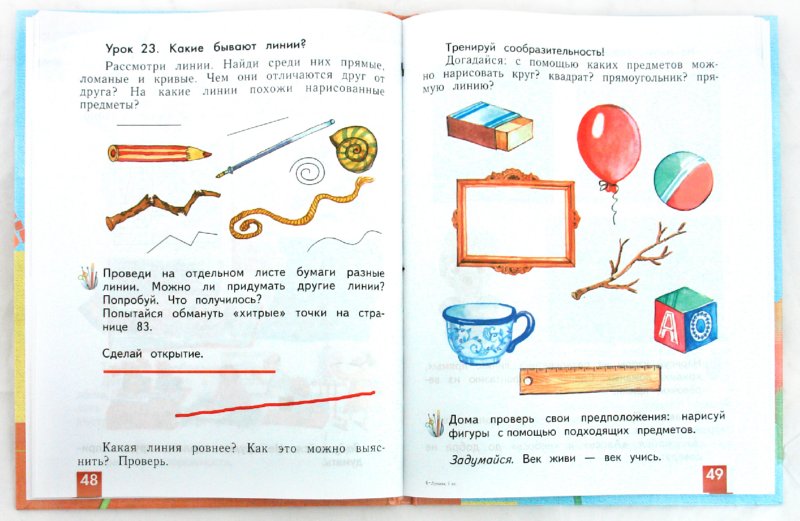 Урок 23. Какие бывают линии?
Рассмотри линии. Найди среди них прямые,
ломаные и кривые. Чем они отличаются друг от
друга? На какие линии похожи нарисованные
предметы?
Проведи на отдельном листе бумаги разные
линии. Можно ли придумать другие линии?
Попробуй. Что получилось?
Попытайся обмануть «хитрые» точки на стра-
нице 83.
Сделай открытие.
Какая линия ровнее? Как это можно выяс-
нить? Проверь.
48
Тренируй сообразительность!
Догадайся: с помощью каких предметов мож-
но нарисовать круг? квадрат? прямоугольник? пря-
мую линию?
А О
Дома проверь свои предположения: нарисуй
фигуры с помощью подходящих предметов.
Задумайся. Век живи — век учись.
49